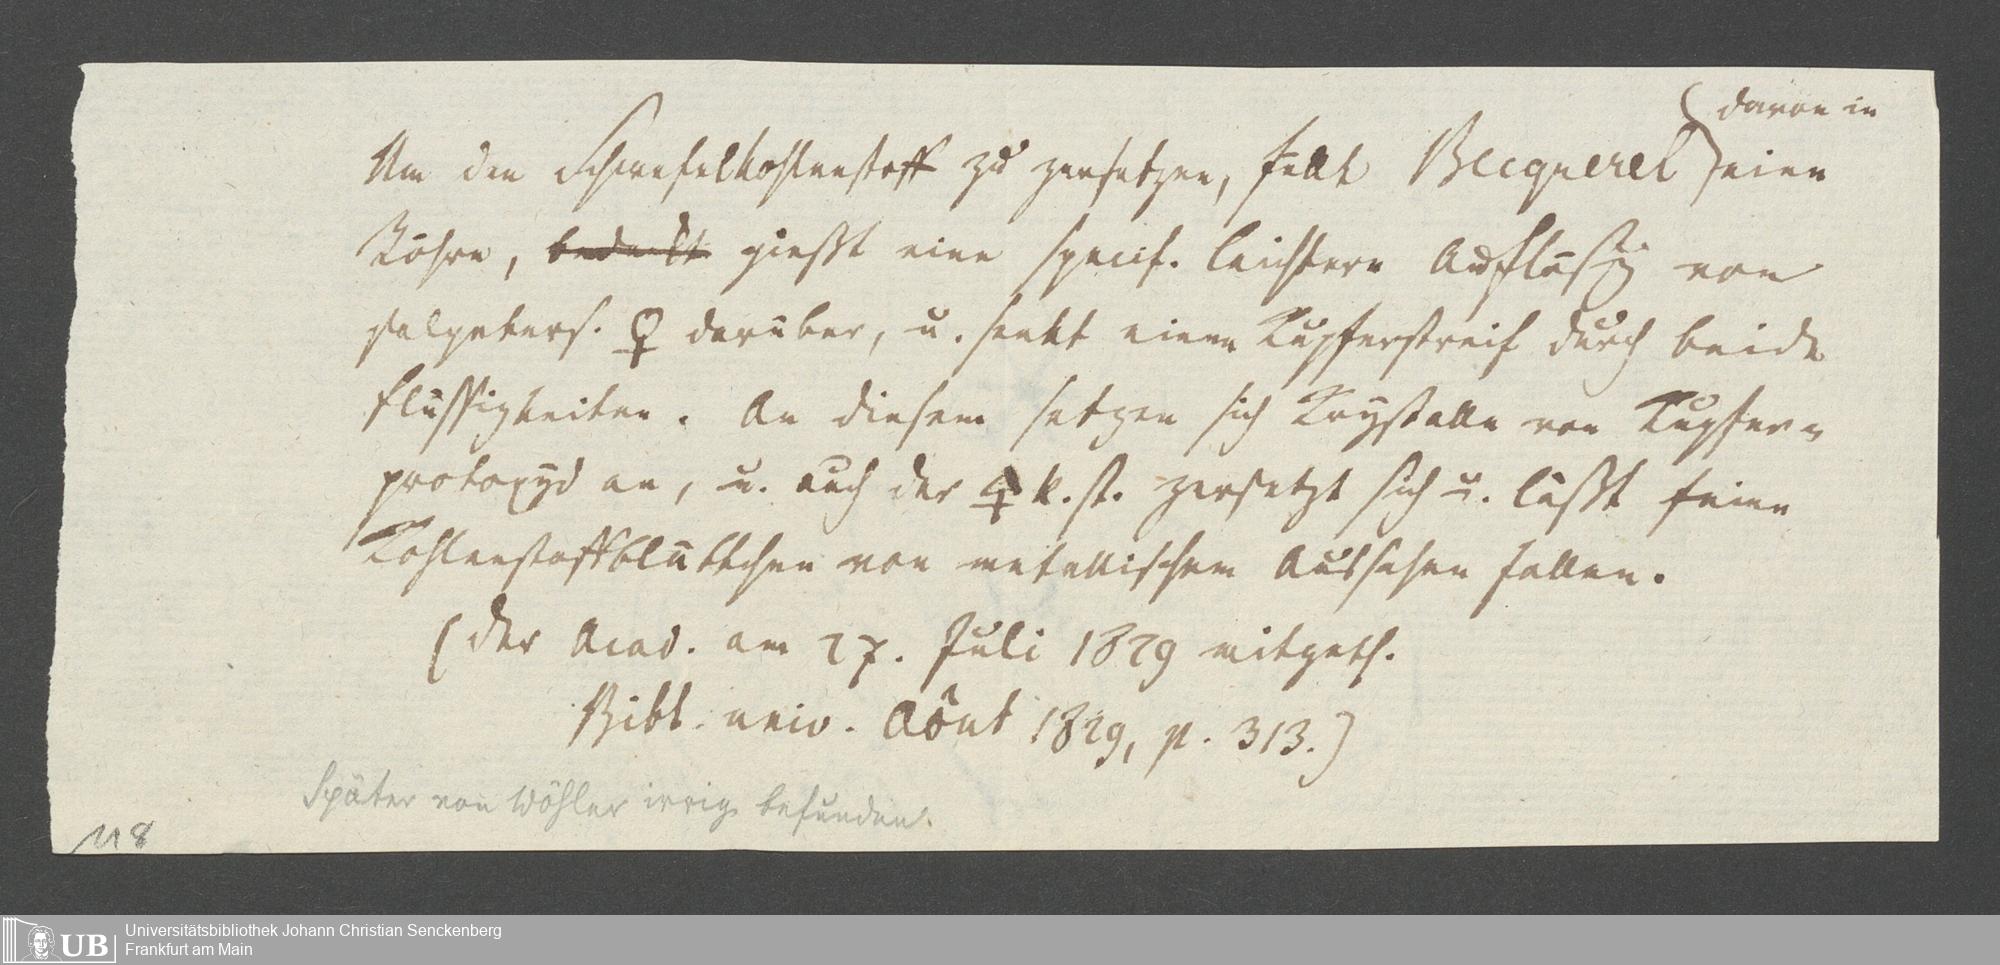 Um den Schwefelkohlenstoff zu zersetzen, füllt Becquerel davon in eine
Röhre, bedeckt gießt eine specif. leichtere Auflösg von
salpeters. ♀ darüber, u. senkt einen Kupferstreif durch beide
Flüssigkeiten. An diesem setzen sich Krystalle von Kupfer-
protoxyd an, u. auch der 🜍 k.st. zersetzt sich u. läßt feine
Kohlenstoffblättchen von metallischem Aussehen fallen.
(Der Acad. am 27. Juli 1829 mitgeth.
Bibl. univ. Aôut 1829, p. 313.)
Später von Wöhler irrig befunden.
118
Universitätsbibliothek Johann Christian Senckenberg
UB Frankfurt am Main